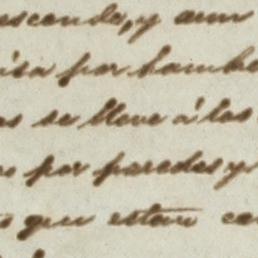 esconde, y aun
por bambo
os se lleve á los
por paredes y
s que estan ca